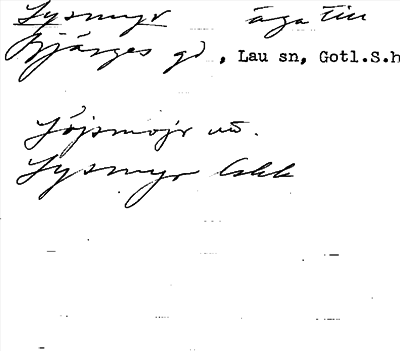 Lysmyr äga till
Bjärges gd, Lau sn, Gotl.S.h
Löjsmojr uö.
Lysmyr bskk